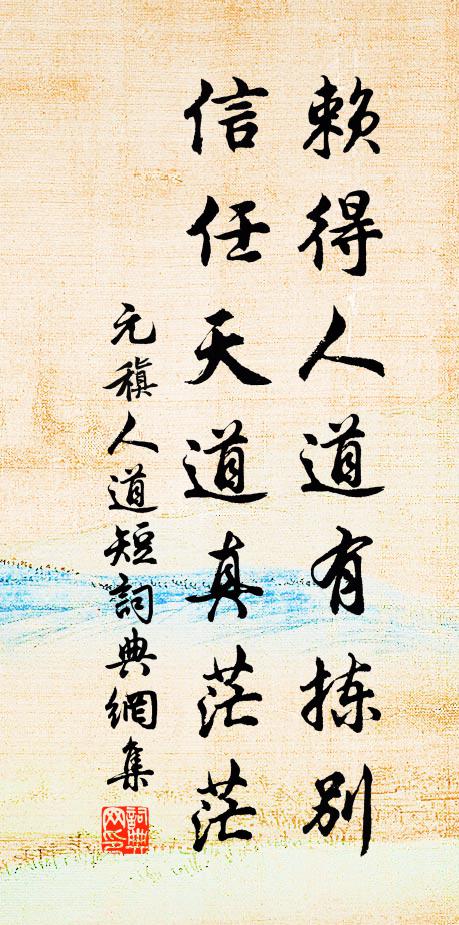 赖得人道有拣别
信任天道真茫茫
元稹人道短詞典網集
詞典网印